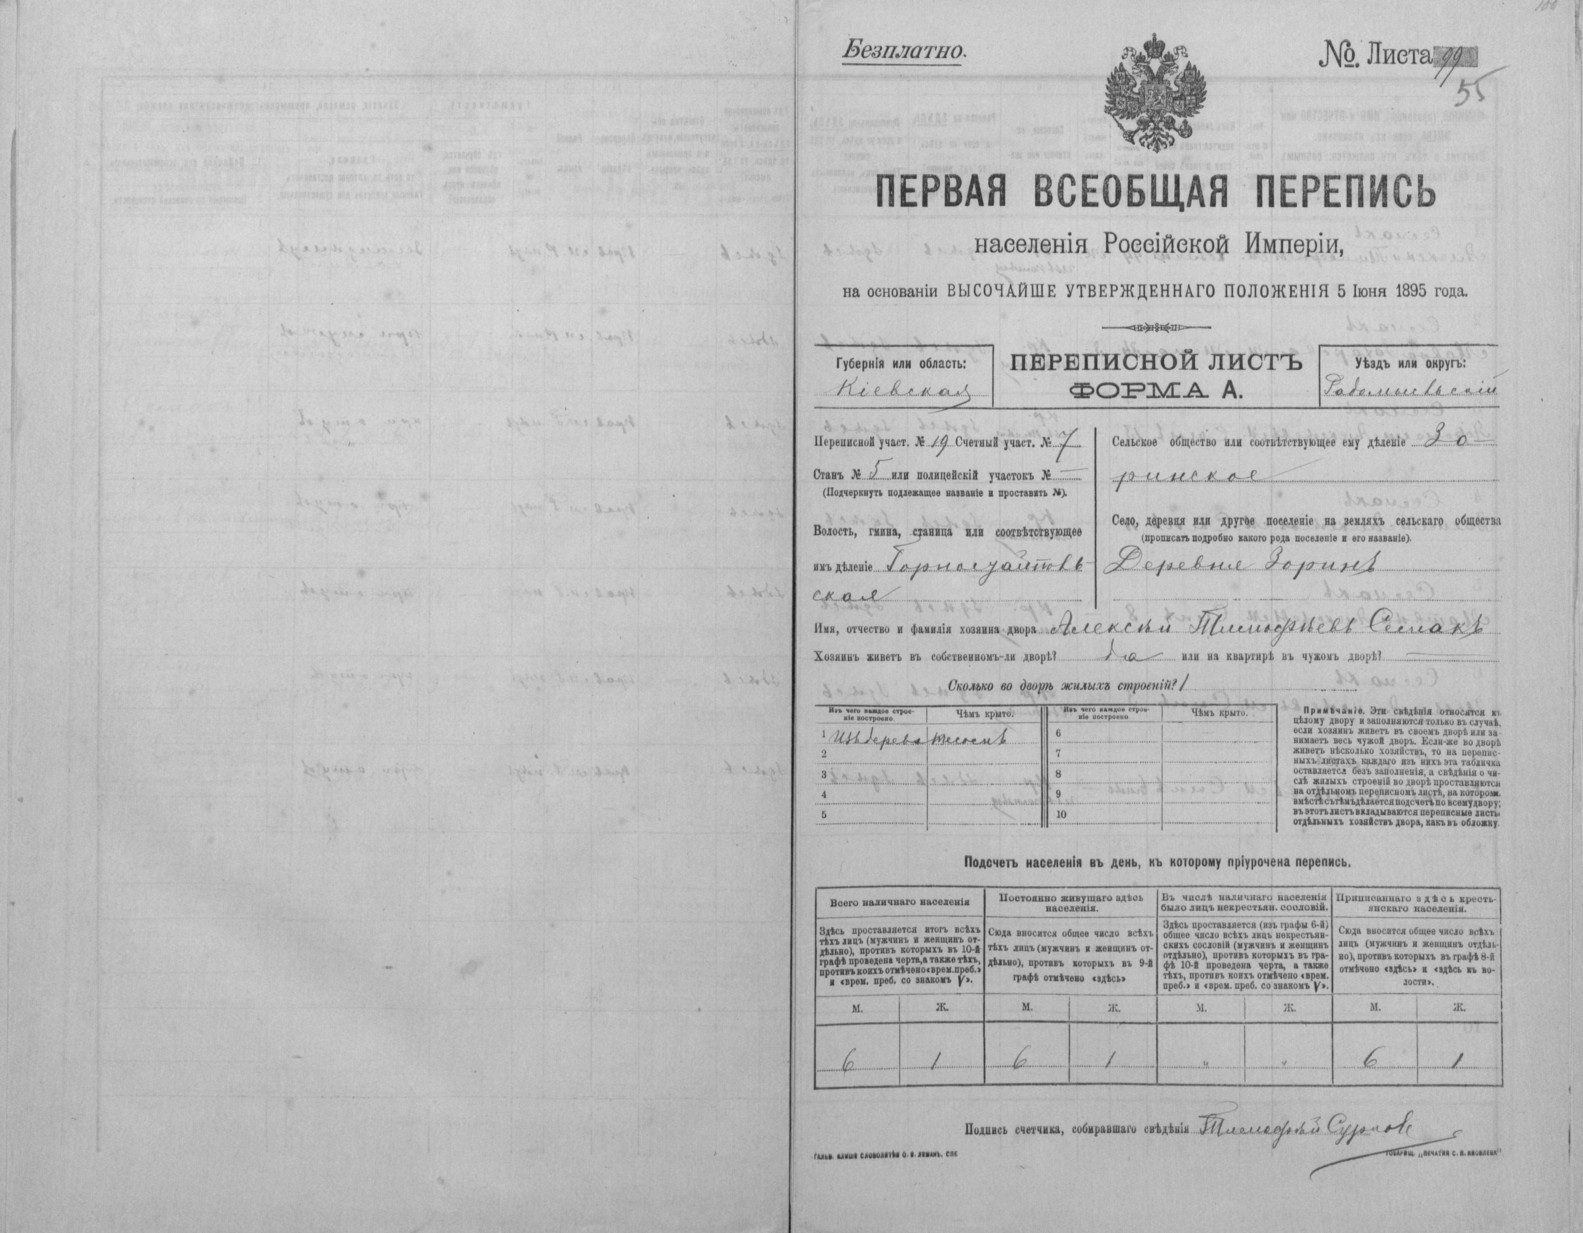 Безплатно.
№. Листа 99
55
ПЕРВАЯ ВСЕОБЩАЯ ПЕРЕПИСЬ
населенія Россійской Имперіи,
на основаніи ВЫСОЧАЙШЕ УТВЕРЖДЕННАГО ПОЛОЖЕНІЯ 5 Іюня 1895 года.
Губернія или область:
Кіевская
ПЕРЕПИСНОЙ ЛИСТЪ
ФОРМА А.
Уѣздъ или округъ:
Радомысльскій
Переписной участ. № 19 Счетный участ. № 7
Станъ № 5 или полицейскій участокъ № —
(Подчеркнуть подлежащее названіе и проставить №).
Волость, гмина, станица или соотвѣтствующее
имъ дѣленіе Горностайполь-
ская
Сельское общество или соотвѣтствующее ему дѣленіе Зо-
ринское
Село, деревня или другое поселеніе на земляхъ сельскаго общества
(прописать подробно какого рода поселеніе и его названіе).
Деревня Зоринъ
Имя, отчество и фамилія хозяина двора Алексѣй Тимофѣевъ Семакъ
Хозяинъ живетъ въ собственномъ-ли дворѣ? да или на квартирѣ въ чужомъ дворѣ? —
Сколько во дворѣ жилыхъ строеній? 1
Изъ чего каждое строе-
ніе построено.
Чѣмъ крыто.
Изъ чего каждое строе-
ніе построено
Чѣмъ крыто.
1 Изъ дерева тесомъ
2
3
4
5
6
7
8
9
10
Примѣчаніе. Эти свѣдѣнія относятся къ
цѣлому двору и заполняются только въ случаѣ,
если хозяинъ живетъ въ своемъ дворѣ или за-
нимаетъ весь чужой дворъ. Если-же во дворѣ
живетъ нѣсколько хозяйствъ, то на перепис-
ныхъ листахъ каждаго изъ нихъ эта табличка
оставляется безъ заполненія, а свѣдѣнія о чи-
слѣ жилыхъ строеній во дворѣ проставляются
на отдѣльномъ переписномъ листѣ, на которомъ
вмѣстѣ съ тѣмъ дѣлается подсчетъ по всему двору;
въ этотъ листъ вкладываются переписные листы
отдѣльныхъ хозяйствъ двора, какъ въ обложку.
Подсчетъ населенія въ день, къ которому пріурочена перепись.
Всего наличнаго населенія
Здѣсь проставляется итогъ всѣхъ
тѣхъ лицъ (мужчинъ и женщинъ от-
дѣльно), противъ которыхъ въ 10-й
графѣ проведена черта, а также тѣхъ,
противъ коихъ отмѣчено «врем. преб.»
и «врем. преб. со знакомъ V».
Постоянно живущаго здѣсь
населенія.
Сюда вносится общее число всѣхъ
тѣхъ лицъ (мужчинъ и женщинъ от-
дѣльно), противъ которыхъ въ 9-й
графѣ отмѣчено «здѣсь»
Въ числѣ наличнаго населенія
было лицъ некрестьян. сословій.
Здѣсь проставляется (изъ графы 6-й)
общее число всѣхъ лицъ некрестьян-
скихъ сословій (мужчинъ и женщинъ
отдѣльно), противъ которыхъ въ гра-
фѣ 10-й проведена черта, а также
тѣхъ, противъ коихъ отмѣчено «врем.
преб.» и «врем. преб. со знакомъ V».
Приписаннаго здѣсь кресть-
янскаго населенія.
Сюда вносится общее число всѣхъ
лицъ (мужчинъ и женщинъ отдѣль-
но), противъ которыхъ въ графѣ 8-й
отмѣчено «здѣсь» и «здѣсь въ во-
лости».
М. Ж. М. Ж. М. Ж. М. Ж.
6 1 6 1 „ „ 6 1
Подпись счетчика, собиравшаго свѣдѣнія Тимофѣй
ГАЛЬВ. КЛИШЕ СЛОВОЛИТНИ О. И. ЛЕМАНЪ, СПБ
ТОВАРИЩ. „ПЕЧАТНЯ С. П. ЯКОВЛЕВА“